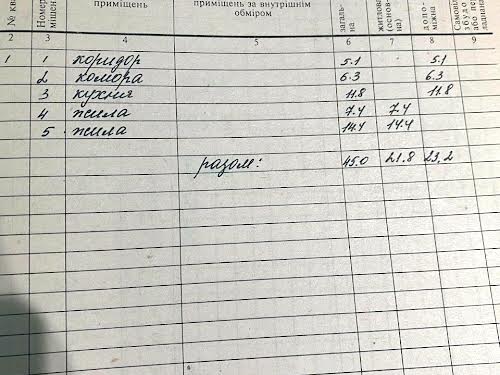 № ква
Номер
міщен
приміщень
приміщень за внутрішнім
обміром
загаль-
на
житлова
(основ-
на)
допо-
міжна
Самові
збудо
або пер
ладнана
2 3 4 5 6 7 8 9
1 1 коридор 5.1 5.1
2 комора 6.3 6.3
3 кухня 11.8 11.8
4 жила 7.4 7.4
5 жила 14.4 14.4
разом: 45.0 21.8 23.2